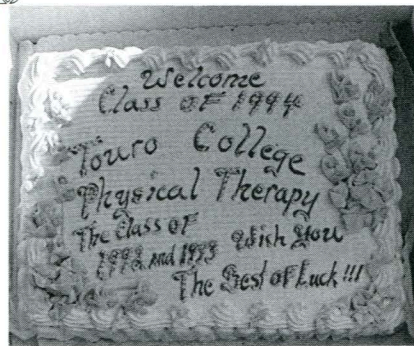 Welcome
Class OF 1994
Touro College
Physical Therapy
The Class of
1992 and 1993 Wish You
The Best of Luck!!!